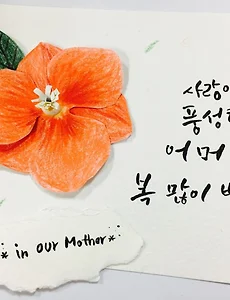 사랑이
풍성한
어머
복 많이
* in our Mother *